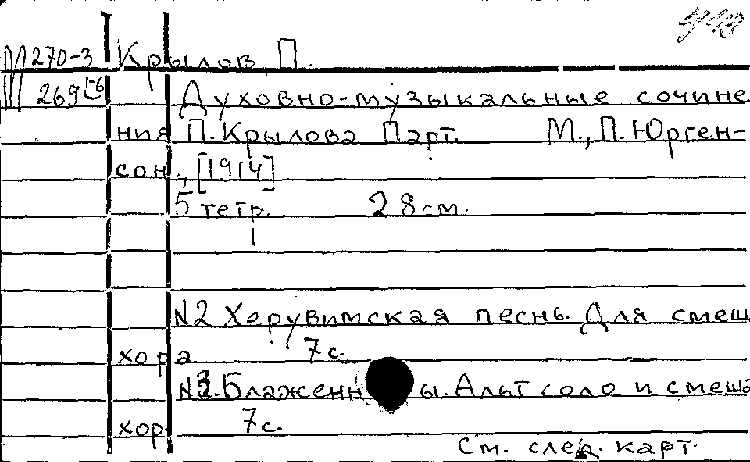 270-3 Крылов П.
269 Духовно-музыкальные сочине
ния П. Крылова Парт. М., П. Юрген-
сон, [1914]
5 тетр. 28 см.
N2 Херувимская песнь. Для смеш
хора 7 с.
N3. Блаженн ы. Альт соло и смеш
хор 7 с.
См. след. карт.